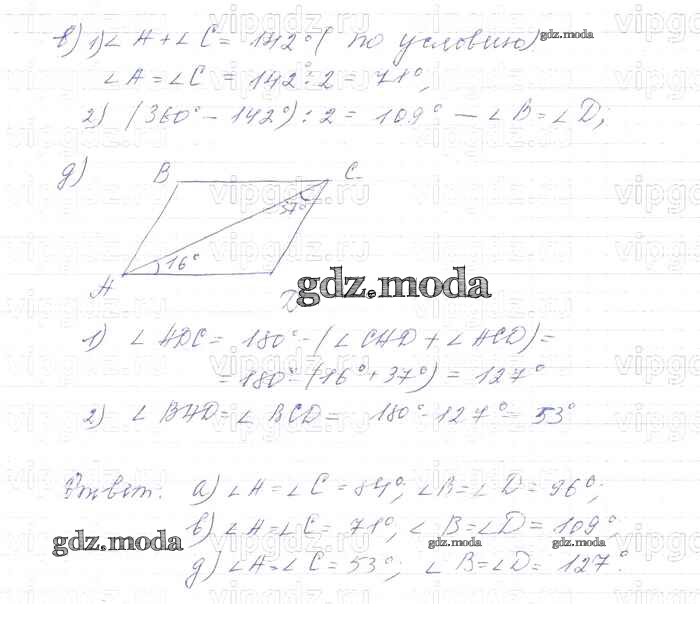 в) 1) ∠A + ∠C = 142° (по условию)
gdz.moda
∠A = ∠C = 142° : 2 = 71°,
2) (360° - 142°) : 2 = 109° — ∠B = ∠D;
д)
B C
37°
16°
A D
gdz.moda
1) ∠ADC = 180° - (∠CAD + ∠ACD) =
= 180° - (16° + 37°) = 127°
2) ∠BAD = ∠BCD = 180° - 127° = 53°
Ответ: а) ∠A = ∠C = 84°; ∠B = ∠D = 96°;
в) ∠A = ∠C = 71°, ∠B = ∠D = 109°
gdz.moda gdz.moda gdz.moda
д) ∠A = ∠C = 53°; ∠B = ∠D = 127°.